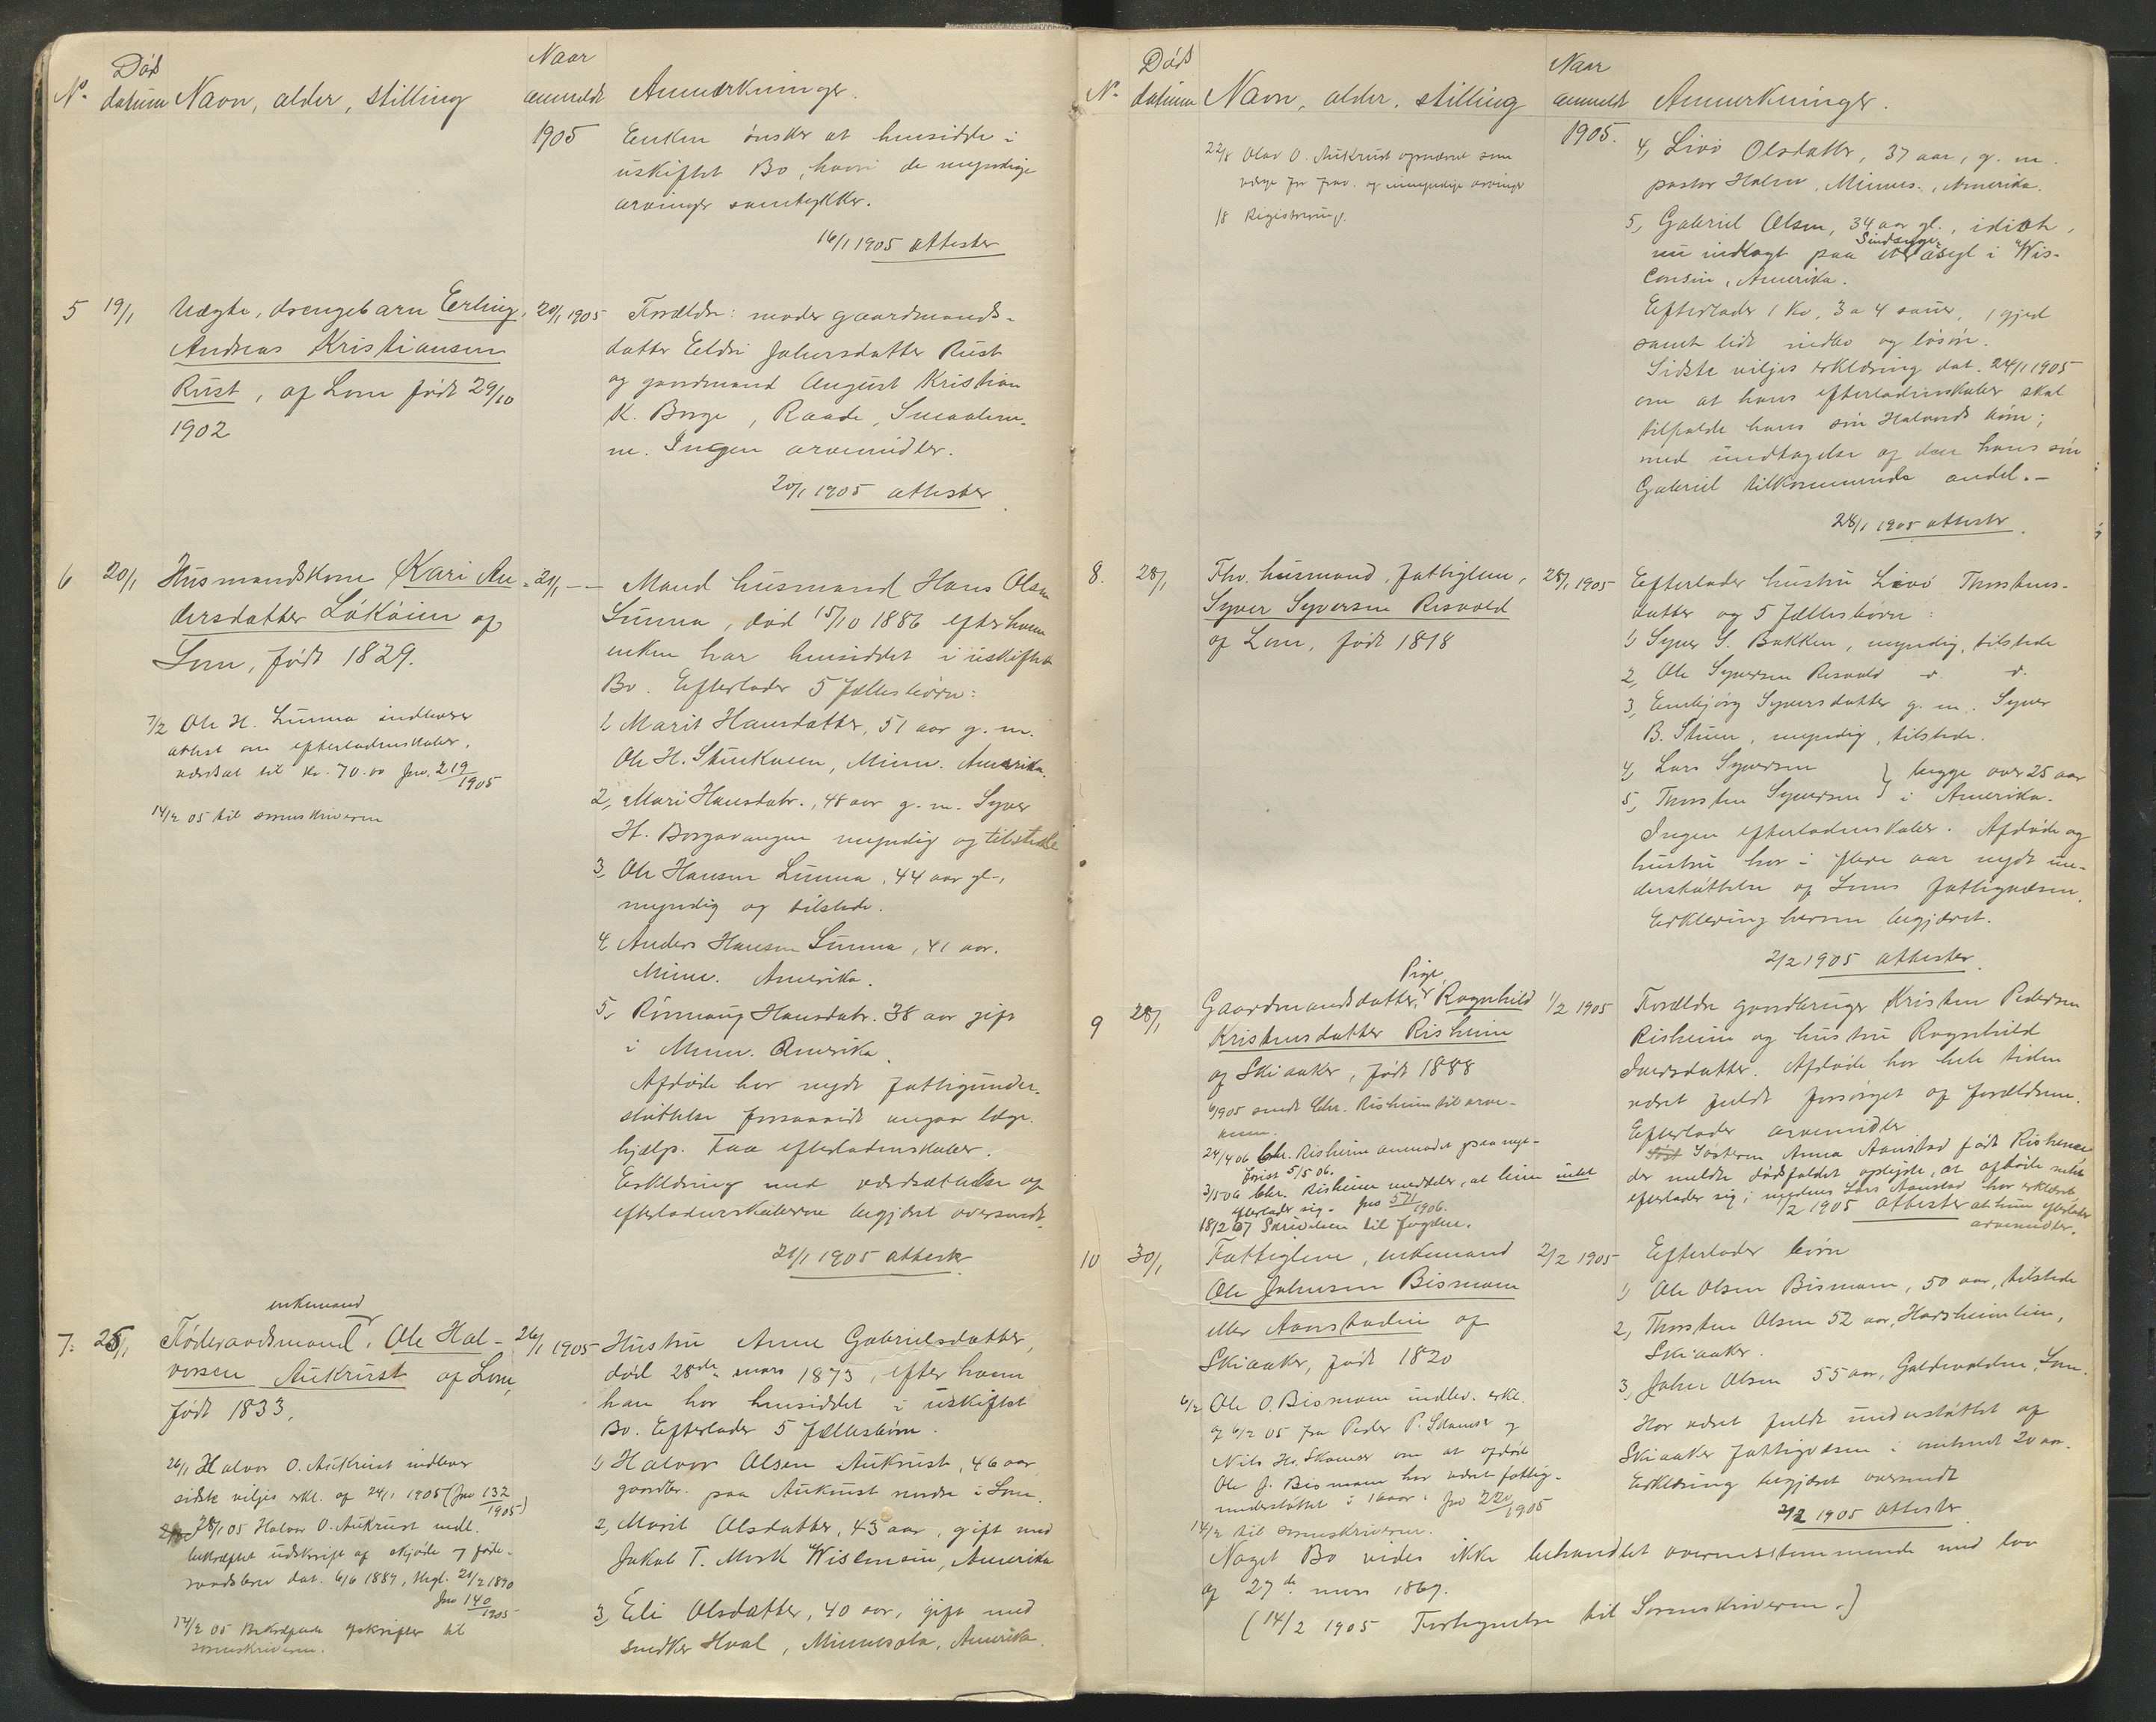 No. Døds datum Navn, alder, stilling Naar anmeldt Anmerkninger.
1905 Enken ønsker at hensidde i
uskiftet Bo, hvori de myndige
arvinger samtykker.
16/1 1905 attester
5 19/1 Uægte, drengebarn Erling 20/1 1905
Andreas Kristiansen
Rust, af Lom født 29/10
1902
Forældre: moder gaardmands-
datter Eldri Johnsdatter Rust
og gaardmand August Kristian
K. Borge, Raade, Smaalene-
ne. Ingen arvemidler.
20/1 1905 attester
6 20/1 Husmandskone Kari An- 21/1 —
dersdatter Løkøien af
Lom, født 1829.
7/2 Ole H. Sunna indleverer
attest om efterladenskaber,
værdsat til kr. 70.00 jno. 219/1905
14/2 05 til sorenskriveren
Mand husmand Hans Olsen
Sunna, død 15/10 1886 efter hvem
enken har hensiddet i uskiftet
Bo. Efterlader 5 fællesbørn:
1, Marit Hansdatter, 51 aar g. m.
Ole H. Minn. Amerika.
2, Mari Hansdatr., 48 aar g. m. Syver
H. Borgavangen myndig og tilstede
3, Ole Hansen Sunna, 44 aar gl.,
myndig og tilstede.
4, Anders Hansen Sunna, 41 aar.
Minn. Amerika.
5, Rønnaug Hansdatr. 38 aar gift
i Minn. Amerika.
Afdøde har nydt fattigunder-
støttelse forsaavidt angaar læge-
hjælp. Faa efterladenskaber.
Erklæring med værdsættelse af
efterladenskaberne begjæret oversendt.
21/1 1905 attest
7. 25/1 Føderaadsmand, enkemand Ole Hal- 26/1 1905
vorsen Aukrust af Lom,
født 1833.
26/1 Halvor O. Aukrust indlever
sidste viljes erkl. af 24/1 1905 (jno 132/1905)
28/1 05 Halvor O. Aukrust indl.
bekræftet udskrift af skjøde og føde-
raadsbrev dat. 6/6 1889, thgl. 21/2 1890
jno 140/1905
14/2 05 Bekræftede afskrifter til
sorenskriveren.
Hustru Anne Gabrielsdatter,
død 28de mars 1873, efter hvem
han har hensiddet i uskiftet
Bo. Efterlader 5 fællesbørn.
1, Halvor Olsen Aukrust, 46 aar
gaardbr. paa Aukrust nedre i Lom.
2, Marit Olsdatter, 43 aar, gift med
Jakob T. Mork Wisconsin, Amerika
3, Eli Olsdatter, 40 aar, gift med
snedker Hoal, Minnesota, Amerika.
No. Døds datum Navn, alder, stilling Naar anmeldt Anmerkninger.
22/8 Olav O. Aukrust opnævnt som
værge for frav. og umyndige arvinger
/8 Registrering.
1905.
4, Livø Olsdatter, 37 aar, g. m.
pastor Halvo, Minnes., Amerika.
5, Gabriel Olsen, 34 aar gl., idiot,
nu indlagt paa et Sindsyge asyl i Wis-
consin, Amerika.
Efterlader 1 ko, 3 a 4 sauer, 1 gjed
samt lidt indbo og løsøre.
Sidste viljes erklæring dat. 24/1 1905
om at hans efterladenskaber skal
tilfalde hans søn Halvords børn;
med undtagelse af den hans søn
Gabriel tilkommende andel.—
28/1 1905 attester.
8. 28/1 Fhv. husmand, fattiglem, 28/1 1905
Syver Syversen Risvold
af Lom, født 1818
Efterlader hustru Livø Thorstens-
datter og 5 fællesbørn:
1, Syver S. Bakken, myndig, tilstede
2, Ole Syversen Risvold d. d.
3, Syversdatter g. m. Syver
B. myndig, tilstede.
4, Lars Syversen } begge over 25 aar
5, Thorsten Syversen } i Amerika.
Ingen efterladenskaber. Afdøde og
hustru har i flere aar nydt un-
derstøttelse af Loms fattigvæsen.
Erklæring herom begjæret.
2/2 1905 attester.
9 28/1 Gaardmandsdatter, Pige Ragnhild 1/2 1905
Kristensdatter Risheim
af Skiaaker, født 1888
6/1905 sendt Chr. Risheim til
24/4 06 Chr. Risheim anmodet paa nyt-
Frist 5/5 06.
3/5 06 Chr. Risheim meddeler, at hun intet
efterlader sig. jno 571/1906.
18/2 07 Skrivelsen til fogden.
Forældre gaardbruger Kristen Pedersen
Risheim og hustru Ragnhild
Iversdatter. Afdøde har hele tiden
været fuldt forsørget af forældrene.
Efterlader arvemidler
Søsteren Anna Aanstad født Risheim
der meldte dødsfaldet oplyste, at afdøde intet
efterlader sig; medens Lars Aanstad har erklæret
1/2 1905 Attester at hun efterlader
arvemidler.
10 30/1 Fattiglem, enkemand 2/2 1905
Ole Johnsen Bismoen
eller Aanstadøien af
Skiaaker, født 1820
6/2 Ole O. Bismoen indlev. erkl.
af 6/2 05 fra Peder P. og
Nils Hs. Skamser om at afdøde
Ole J. Bismoen har været fattig-
understøttet i jno 220/1905
14/2 til sorenskriveren.
Efterlader børn
1, Ole Olsen Bismoen, 50 aar, tilstede
2, Thorsten Olsen 52 aar, Harsheimlien,
Skiaaker.
3, John Olsen 55 aar, Lom.
Har været fuldt understøttet af
Skiaaker fattigvæsen i omtrent 20 aar.
Erklæring begjæret oversendt
2/2 1905 attester
Noget Bo vides ikke behandlet overensstemmende med lov
af 27de mars 1869.
(14/2 1905 Fortegnelse til Sorenskriveren.)